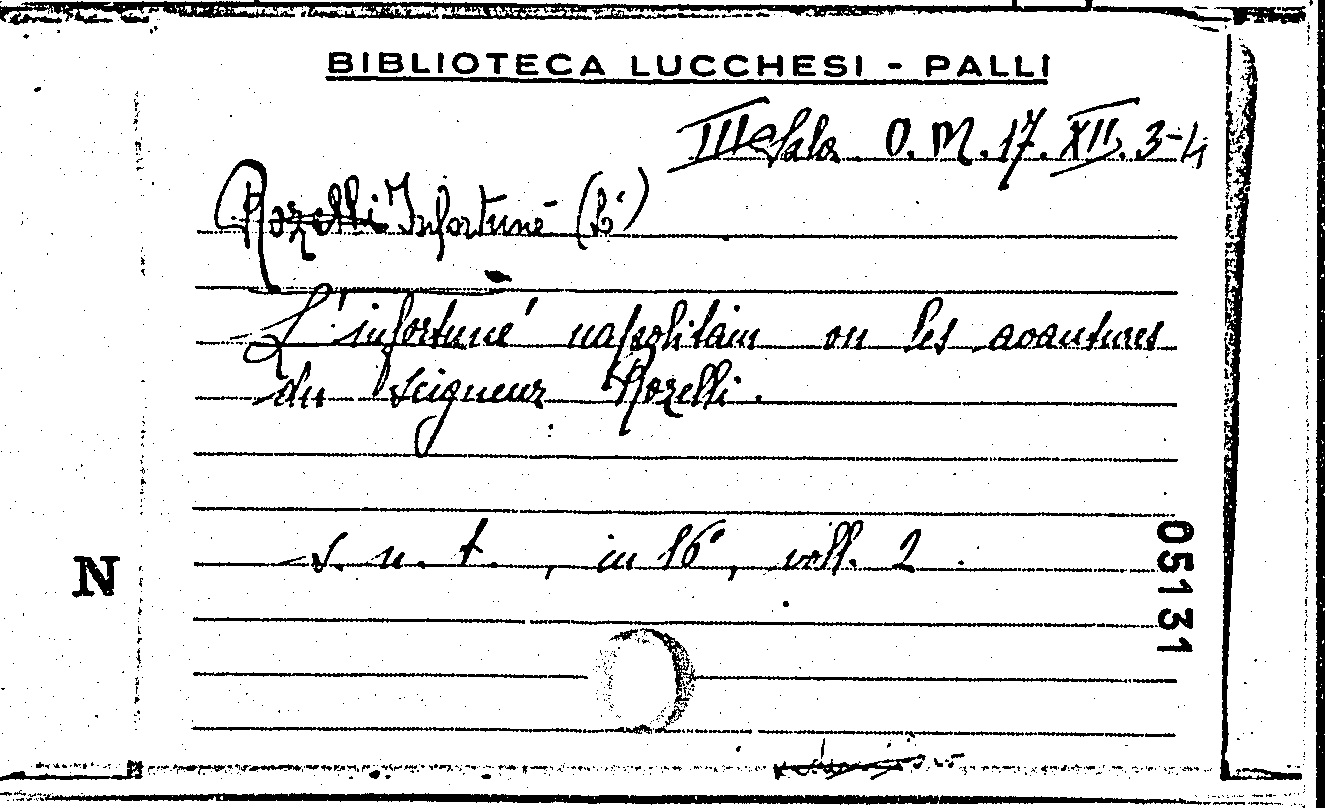 BIBLIOTECA LUCCHESI - PALLI
IIIª Sala. O. M. 17. XII. 3-4
Rozelli Infortuné (L')
L'infortuné napolitain ou les avantures
du seigneur Rozelli.
s. n. t., in 16°, voll. 2.
N
05131